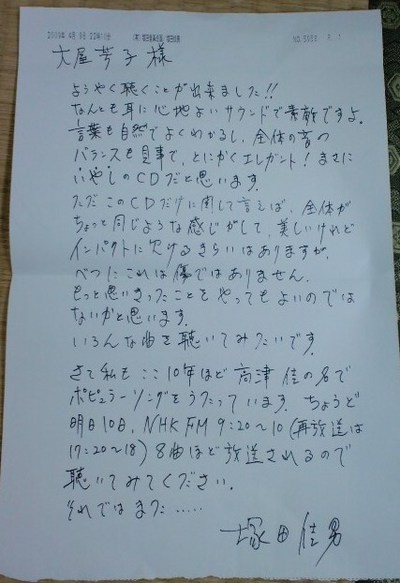 大屋芳子様
ようやく聴くことが出来ました!!
なんとも耳に心地よいサウンドで素敵ですよ.
言葉も自然でよくわかるし、全体の音の
バランスも見事で、とにかくエレガント! まさに
いやしのCDだと思います.
ただこのCDだけに関して言えば、全体が
ちょっと同じような感じがして、美しいけれど
インパクトに欠けるきらいはありますが、
べつにこれは傷ではありません.
もっと思いきったことをやってもよいのでは
ないかと思います.
いろんな曲を聴いてみたいです.
さて私も ここ10年ほど 高津 佳の名で
ポピュラーソングをうたっています. ちょうど
明日10日、NHK FM 9:20~10 (再放送は
17:20~18) 8曲ほど放送されるので
聴いてみてください.
それではまた.....
塚田佳男